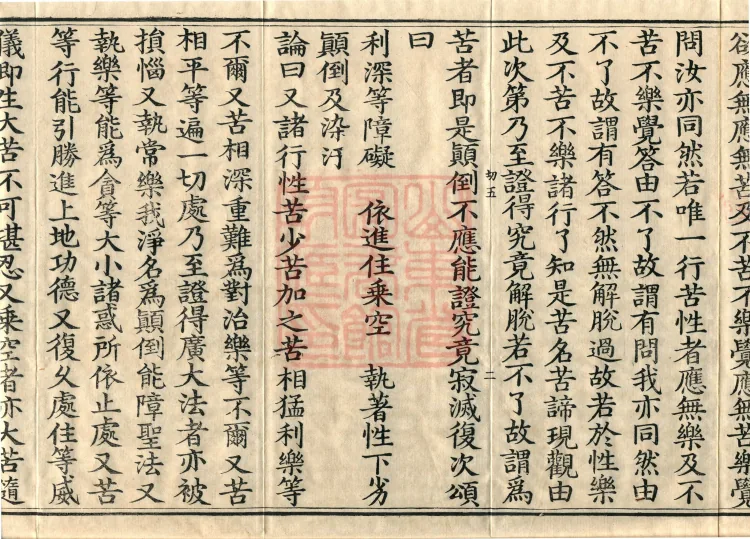 欲應無應無苦及不苦不樂覺應無苦樂覺
問汝亦同然若唯一行苦性者應無樂及不
苦不樂覺答由不了故謂有問我亦同然由
不了故謂有答不然無解脫過故若於性樂
及不苦不樂諸行了知是苦名苦諦現觀由
此次第乃至證得究竟解脫若不了故謂爲
切五
二
苦者即是顚倒不應能證究竟寂滅復次頌
曰
利深等障礙 依進住乘空 執著性下劣
顚倒及染汙
論曰又諸行性苦少苦加之苦相猛利樂等
不爾又苦相深重難爲對治樂等不爾又苦
相平等遍一切處乃至證得廣大法者亦被
損惱又執常樂我淨名爲顚倒能障聖法又
執樂等能爲貪等大小諸惑所依止處又苦
等行能引勝進上地功德又復久處住等威
儀即生大苦不可甚忍又乘空者亦大苦隨